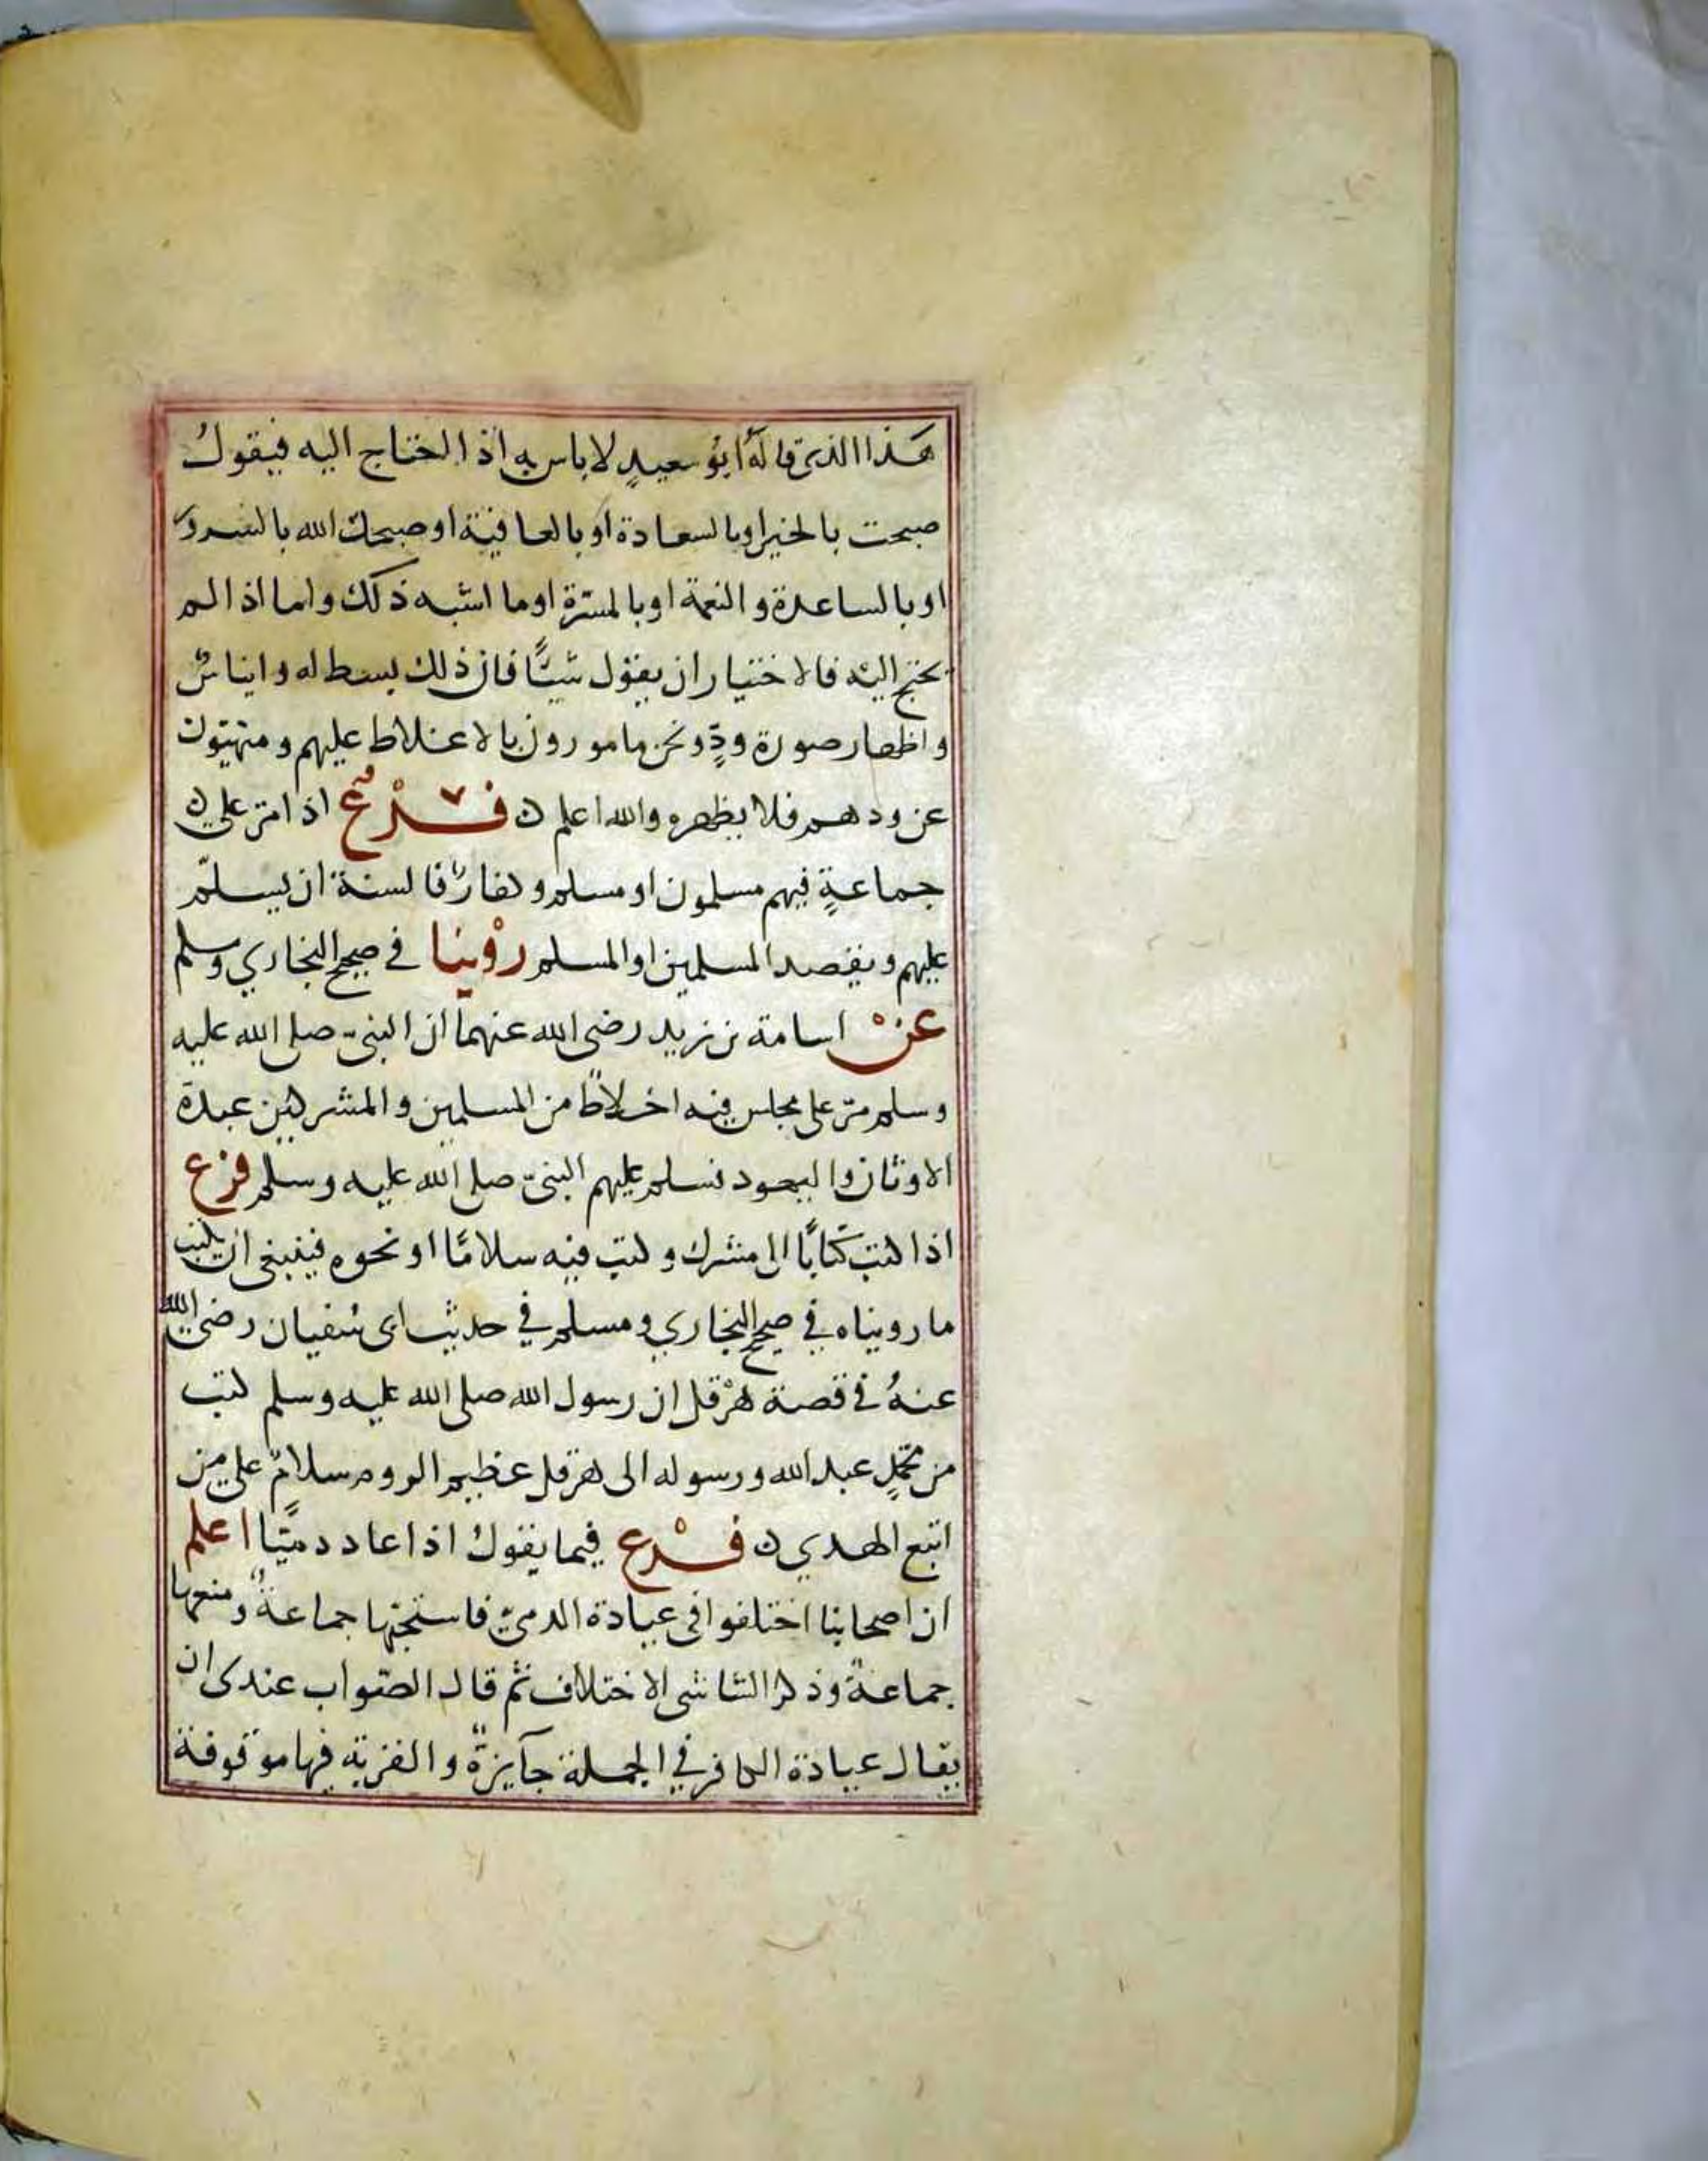 هَذا الذي قالهُ ابُو سعيدٍ لا باس به اذا احتاج اليه فيقولُ
صبحت بالخير او بالسعادة او بالعافية او صبحك الله بالسرور
او بالساعدة و النعمة او بالمسرّة او ما اشبه ذلك واما اذا لم
يحتج اليه فالاختيار ان يقول شيئًا فان ذلك بسط له و ايناسٌ
و اظهار صورة ودٍّ ونحن مامورون بالاغلاط عليهم و منهيّون
عن ودهم فلا يظهره والله اعلم ن فَرْعٌ اذا مرّ على
جماعةٍ فيهم مسلمون او مسلم و كفارٌ فالسنة ان يسلّم
عليهم و يقصد المسلمين او المسلم رُوْينَا في صحيح البخاري ومسلم
عَنْ اسامة بن زيد رضي الله عنهما ان النبيّ صلى الله عليه
وسلم مرّ على مجلس فيه اخلاطٌ من المسلمين و المشركين عبدة
الاوثان و اليهود فسلم عليهم النبيّ صلى الله عليه وسلم فرع
اذا كتب كتَابًا الى مشرك و كتب فيه سلامًا او نحوه فينبغي ان يكتب
ما رويناه في صحيح البخاري و مسلم في حديث ابى سُفيان رضي الله
عنهُ في قصة هرْقل ان رسول الله صلى الله عليه وسلم كتب
من محمدٍ عبد الله و رسوله الى هرقل عظيم الروم سلامٌ على من
اتبع الهدي ن فَرْع فيما يقولُ اذا عاد دميّا اعلم
ان اصحابنا اختلفوا في عيادة الدميّ فاستحبّها جماعةٌ و منعها
جماعةٌ وذكر الشاشي الاختلاف ثم قال الصّواب عندى ان
يقال عيادة الكافر في الجملة جآيزةٌ و القربة فيها موقوفة